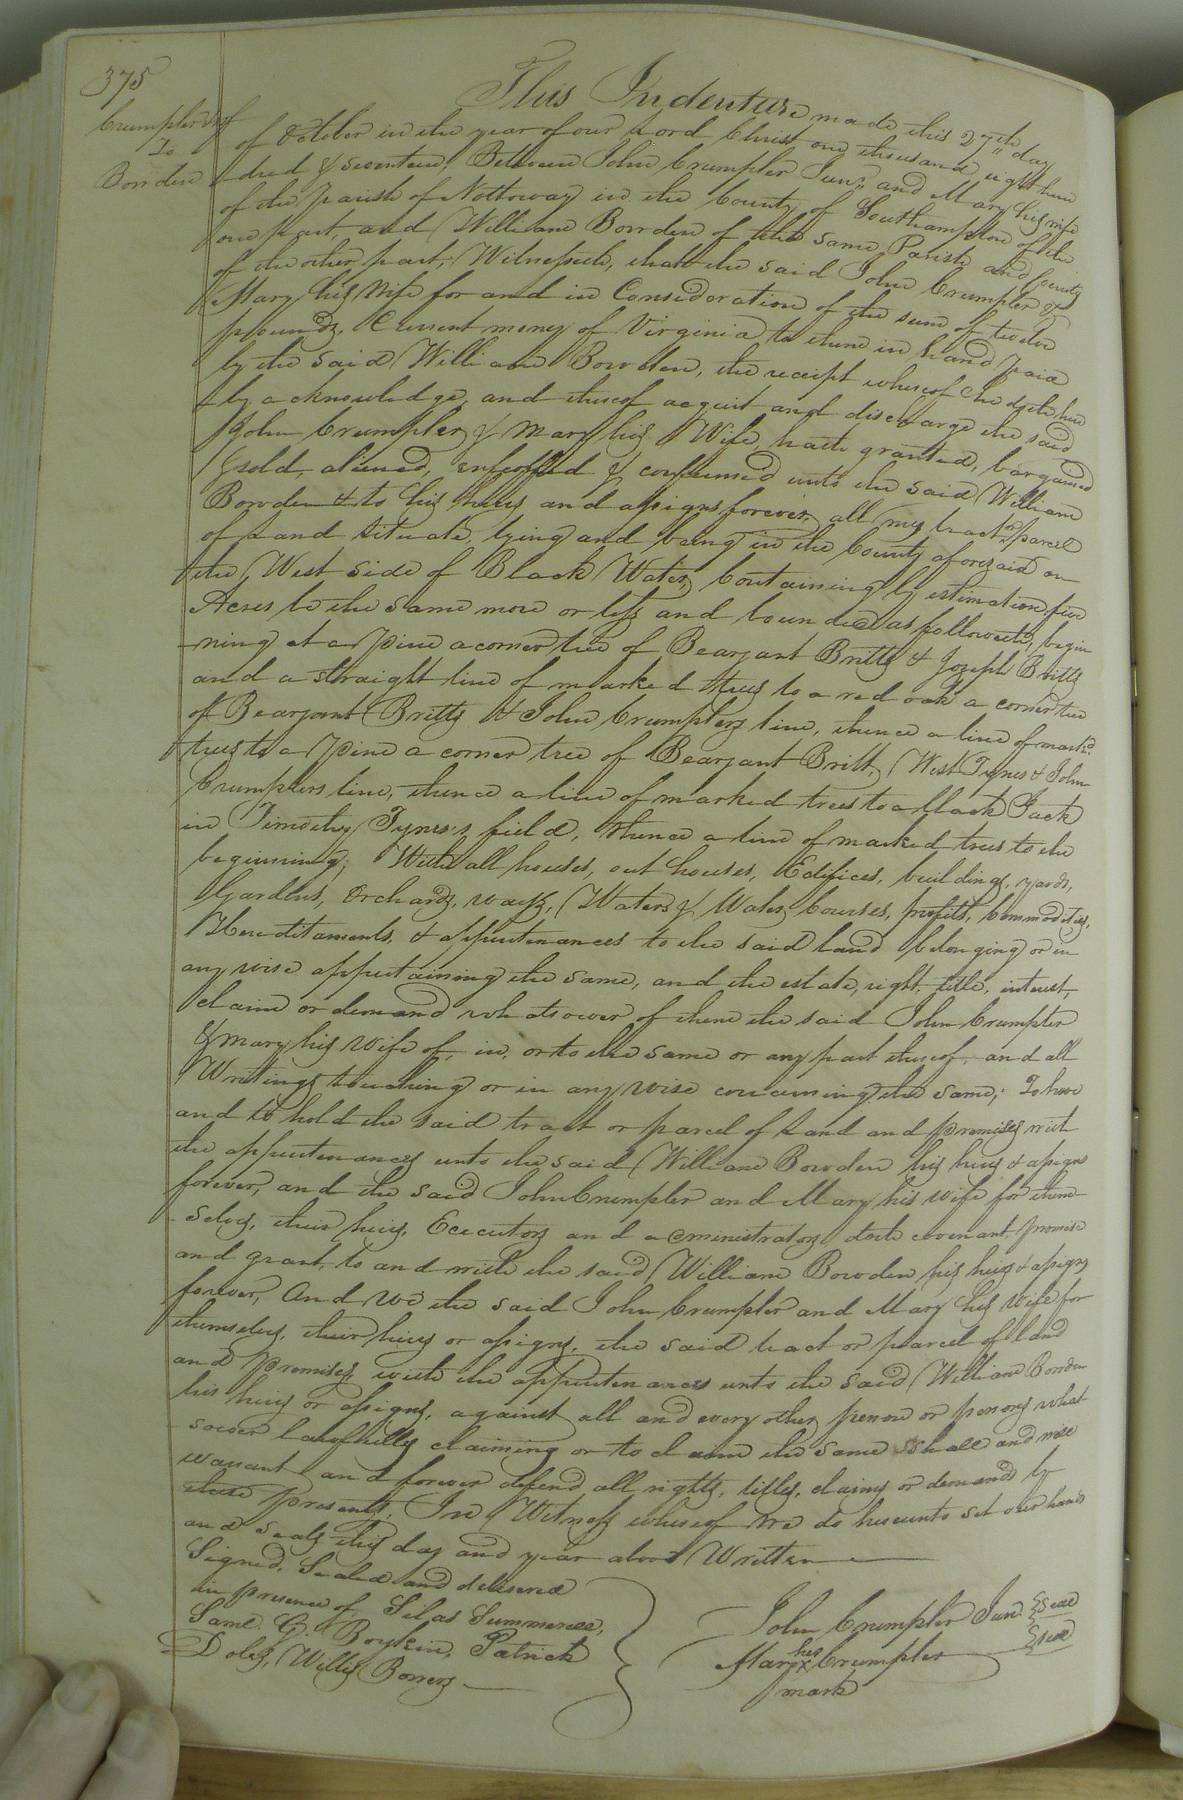 375
Crumpler &uf
To
Bowden
This Indenture made this 27th day
of October in the year of our Lord Christ one thousand eight hun
dred & seventeen, Between John Crumpler Junr. and Mary his wife
of the parish of Nottoway in the County of Southampton of the
one part, and William Bowden of the same Parish and County
of the other part, Witnesseth, that the said John Crumpler &
Mary his Wife for and in Consideration of the sum of twelve
pounds, Current money of Virginia to them in hand paid
by the said William Bowden, the receipt whereof he doth here
by acknowledge, and thereof acquit and discharge the said
John Crumpler & Mary his Wife, hath granted, bargained
& sold, aliened, enfeoffed & confirmed unto the said William
Bowden & to his heirs and assigns forever, all my tract or parcel
of Land situate, lying and being in the County aforesaid on
the West side of Black Water, Containing by estimation five
Acres be the same more or less and bounded as followeth, begin
ning at a Pine a corner tree of Bearjant Britts & Joseph Britts
and a straight line of marked trees to a red oak a corner tree
of Bearjant Britts & John Crumplers line, thence a line of markd.
trees to a Pine a corner tree of Bearjant Britt, West Tynes & John
Crumplers line, thence a line of marked trees to a black Jack
in Timothy Tynes's field, thence a line of marked trees to the
beginning; With all houses, out houses, Edifices, buildings, yards,
Gardens, Orchards, ways, Waters & Water Courses, profits, Commodities,
Hereditaments, & appurtenances to the said land belonging or in
any wise appertaining the same, and the estate, right, title, interest,
claim or demand whatsoever of them the said John Crumpler
& Mary his Wife of, in, or to the same or any part thereof, and all
Writings touching or in any wise concerning the same; To have
and to hold the said tract or parcel of Land and premises with
the appurtenances unto the said William Bowden his heirs & assigns
forever, and the said John Crumpler and Mary his wife for them-
selves, their heirs, Executors and administrators doth covenant, promise
and grant, to and with the said William Bowden his heirs & assigns
forever, And we the said John Crumpler and Mary his Wife for
themselves, their heirs or assigns, the said tract or parcel of land
and Premises, with the appurtenances unto the said William Bowden
his heirs or assigns, against all and every other person or persons what
soever lawfully claiming or to claim the same shall and will
warrant and forever defend all rights, titles, claims or demands by
these presents, In Witness whereof we do hereunto set our hands
and seals this day and year above Written
Signed, Sealed and delivered
in presence of Silas Summerell,
Saml. G. Boykin, Patrick
Doles, Willis Borrers
John Crumpler Jun. Seal
Mary her x Crumpler Seal
mark